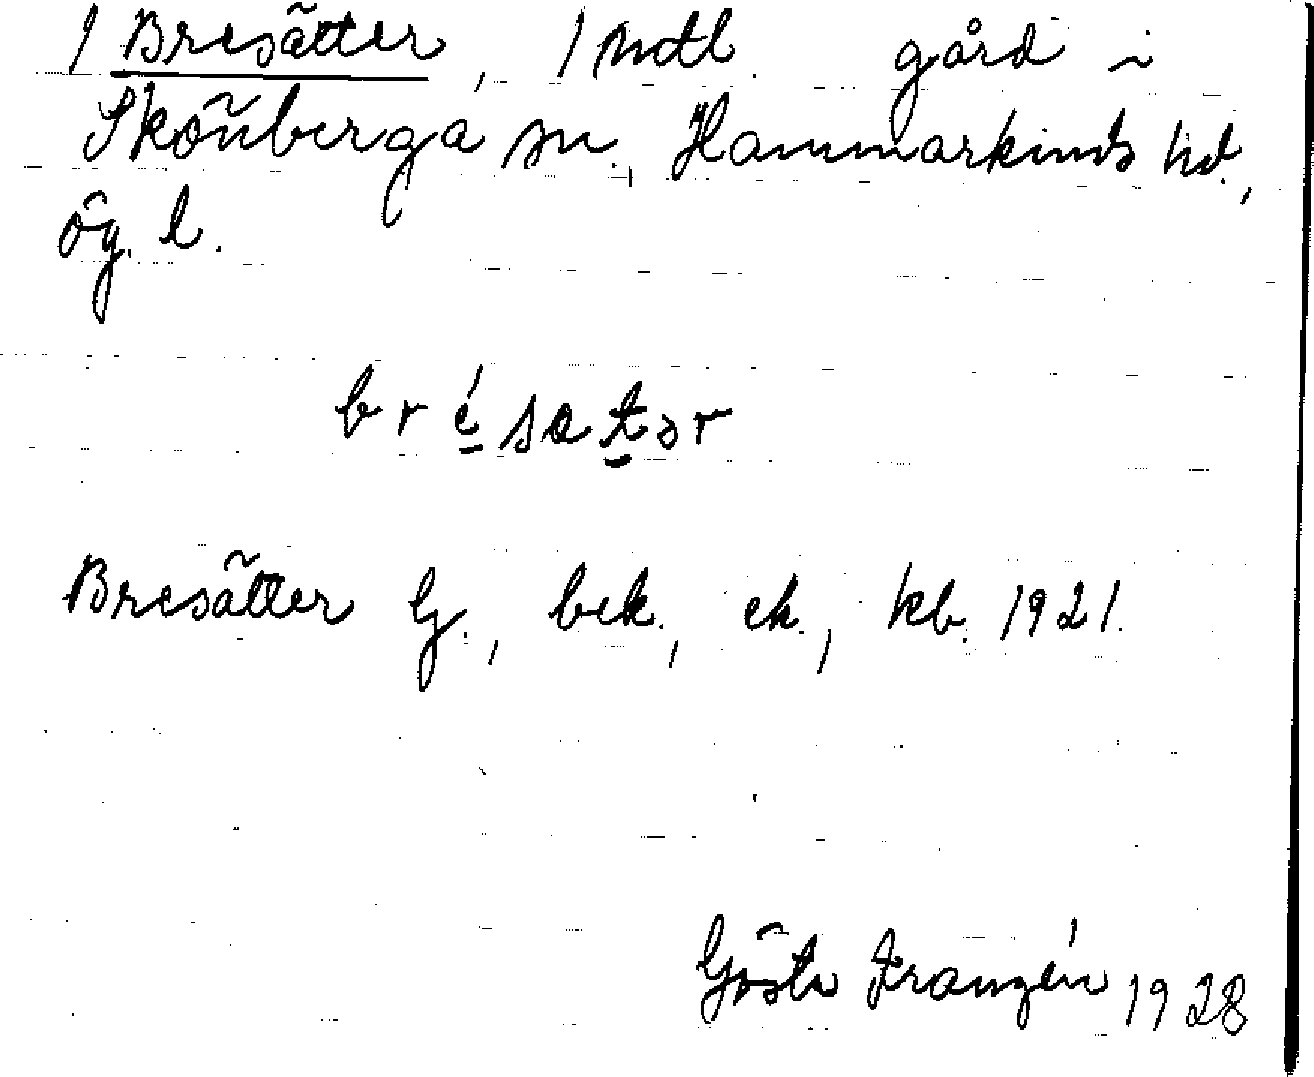 1 Bresätter, 1 mtl. gård i
Skönberga sn., Hammarkinds hd.,
Ög. l.
brésatər
Bresätter G., bek., ek., kb. 1921.
Gösta Franzén 1928